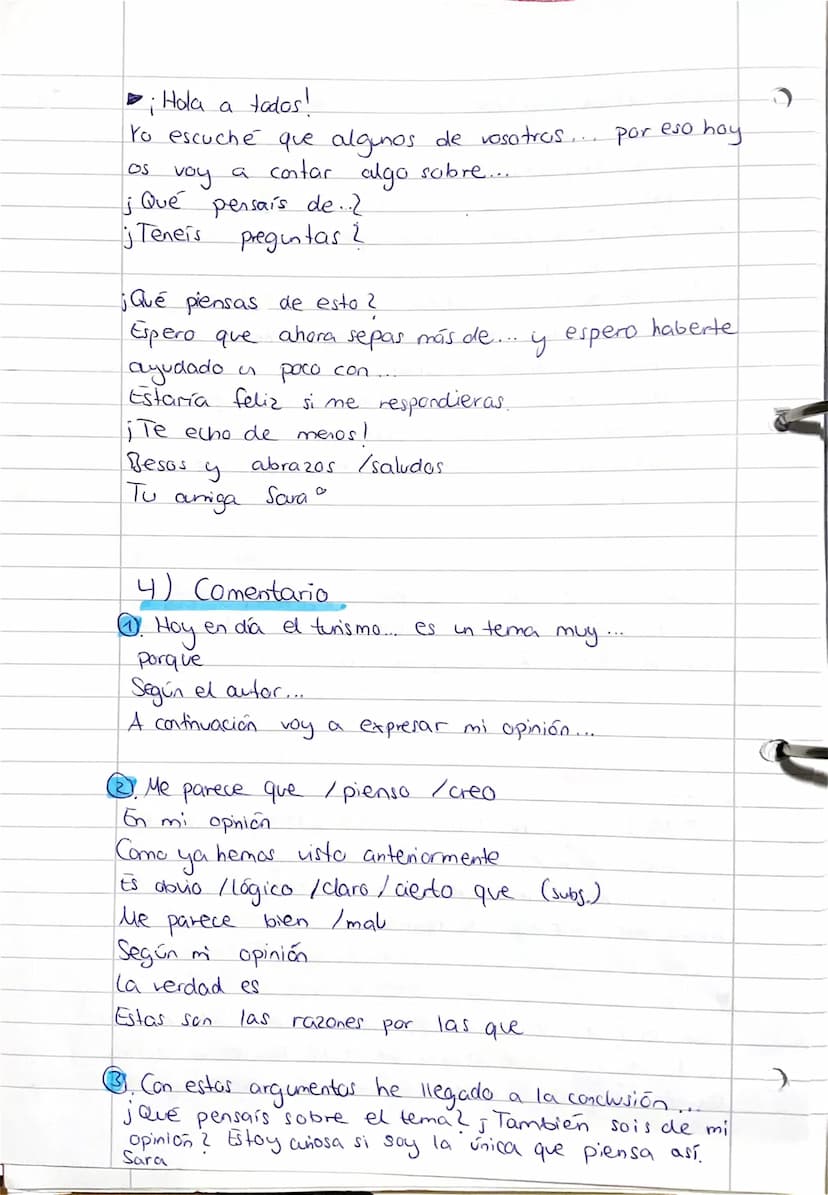 ▶ ¡Hola a todos!
Yo escuché que algunos de vosotros... por eso hoy
os voy a contar algo sobre...
¿Qué pensaís de..?
¿Teneís preguntas?
¿Qué piensas de esto?
Espero que ahora sepas más de... y espero haberte
ayudado un poco con...
Estaría feliz si me respondieras.
¡Te echo de menos!
Besos y abrazos /saludos
Tu amiga Sara
4) Comentario
1. Hoy en día el turismo... es un tema muy...
porque
Según el autor...
A continuación voy a expresar mi opinión...
2. Me parece que /pienso /creo
En mi opinión
Como ya hemos visto anteriormente
Es obvio /lógico /claro /cierto que (subs.)
Me parece bien /mal
Según mi opinión
La verdad es
Estas son las razones por las que
3. Con estos argumentos he llegado a la conclusión...
¿Qué pensaís sobre el tema? ¿También sois de mi
opinión? Estoy curiosa si soy la única que piensa así.
Sara